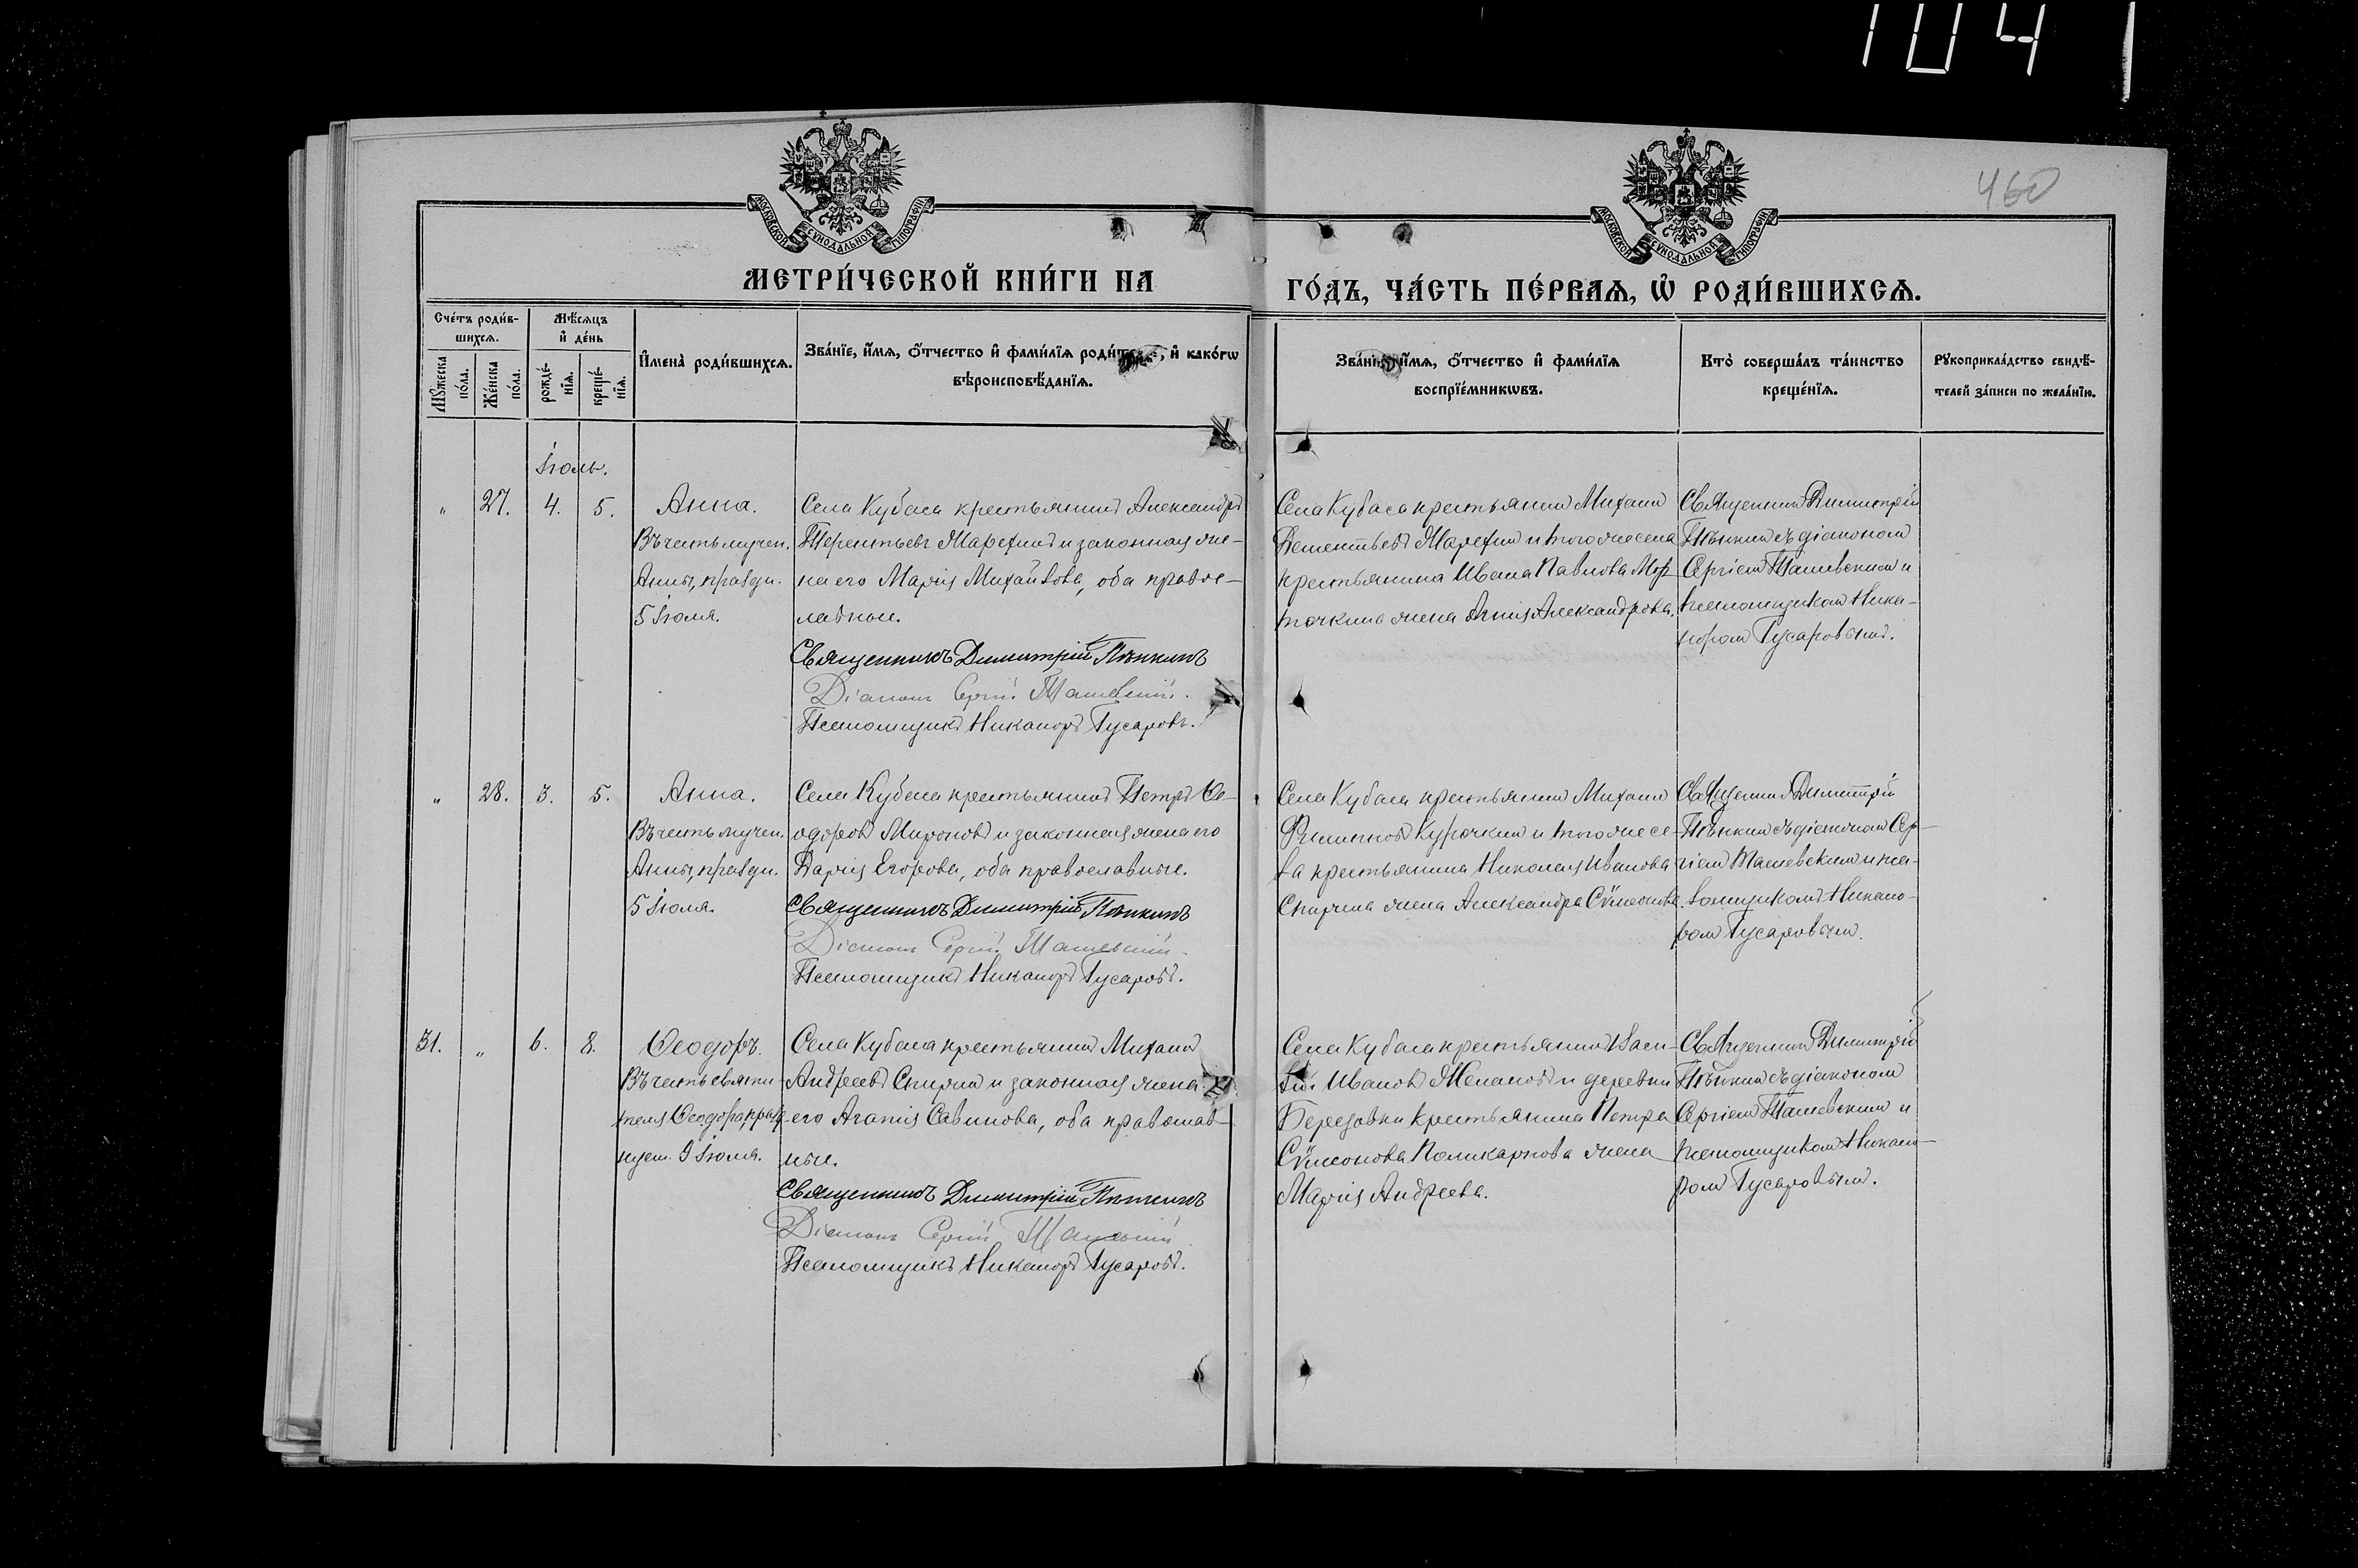 1041
460
МОСКОВСКОЙ СѴНОДАЛЬНОЙ ТИПОГРАФІИ
МОСКОВСКОЙ СѴНОДАЛЬНОЙ ТИПОГРАФІИ
МЕТРИ́ЧЕСКОЙ КНИ́ГИ НА
ГО́ДЪ, ЧА́СТЬ ПЕ́РВАѦ, Ѡ҆ РОДИ́ВШИХСѦ.
Сче́тъ роди́в-
шихсѧ.
Мꙋ́жеска
по́ла.
Же́нска
по́ла.
Мѣ́сѧцъ
и҆ де́нь
рожде́-
нїѧ.
креще́-
нїѧ.
И҆мена̀ роди́вшихсѧ.
Зва́нїе, и҆́мѧ, ѻ҆́тчество и҆ фами́лїѧ и҆ како́гѡ
вѣроисповѣ́данїѧ.
Зва́нїе, и҆́мѧ, ѻ҆́тчество и҆ фами́лїѧ
воспрїе́мникѡвъ.
Кто̀ соверша́лъ та́инство
креще́нїѧ.
Рꙋкоприкла́дство свидѣ́-
телей за́писи по жела́нїю.
Іюль.
„ 27. 4. 5.
Анна.
Въ честь мучен.
Анны, праздн.
5 Іюля.
Села Кубаса крестьянинъ Александръ
Терентьевъ Марехинъ и законная же-
на его Марія Михайлова, оба правос-
лавные.
Священникъ Димитрій Пѣнкинъ
Діаконъ Сергій
Псаломщикъ Никаноръ Гусаровъ.
Села Кубаса крестьянинъ Михаилъ
Дементьевъ Марехин и того же села
крестьянина Ивана Павлова Мор-
точкина жена Александрова.
Священникъ Димитрій
Пѣнкин съ діакономъ
Сергіемъ и
псаломщикомъ Ника-
норомъ Гусаровымъ.
„ 28. 3. 5.
Анна.
Въ честь мучен.
Анны, празди.
5 Іюля.
Села Кубаса крестьянинъ Петръ Ѳе-
одоровъ Мироновъ и законная жена его
Дарія Егорова, оба православные.
Священникъ Димитрій Пѣнкинъ
Діаконъ Сергій
Псаломщикъ Никаноръ Гусаровъ.
Села Кубаса крестьянин Михаил
Филиппов Курочкин и того же се-
ла крестьянина Николая Иванова
Спирина жена Александра Сѵмеонова.
Священник Димитрій
Пѣнкин съ діаконом Сер-
гіем и пса-
ломщикомъ Никано-
ром Гусаровым.
31. „ 6. 8.
Ѳеодоръ.
Въ честь святи-
теля Ѳеодора, празд-
нуем. 9 Іюля.
Села Кубаса крестьянин Михаил
Андреевъ Спирин и законная жена
его Агапія Савинова, оба православ-
ные.
Священникъ Димитрій Пѣнкинъ
Діаконъ Сергій
Псаломщикъ Никаноръ Гусаровъ.
Села Кубаса крестьянин Васи-
лій Иванов и деревни
Березовки крестьянина Петра
Сѵмеонова Поликарпова жена
Марія Андреева.
Священник Димитрій
Пѣнкин съ діаконом
Сергіем и
псаломщиком Никано-
ром Гусаровым.